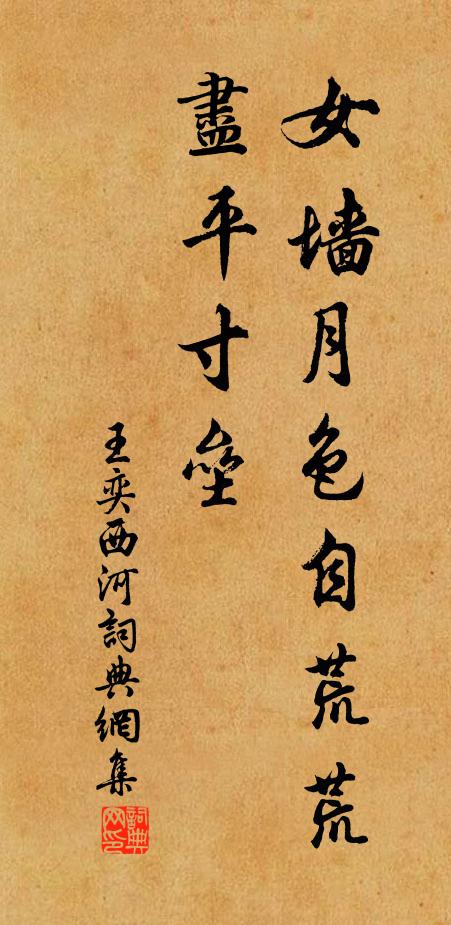 女墙月色自荒荒
盡平寸壘
王奕西河詞典網集
詞典
网印